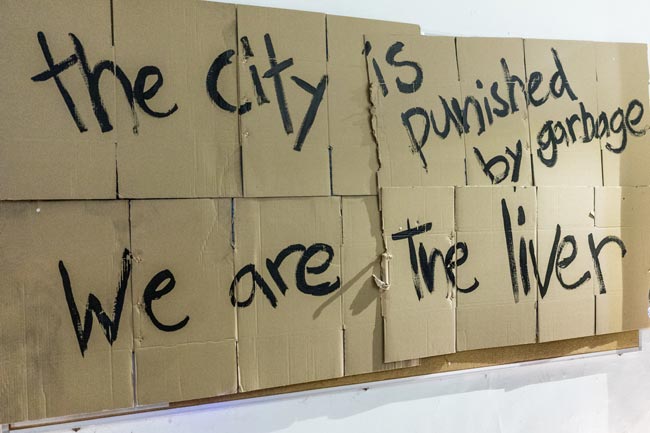 the city is
punished
by garbage
we are the liver